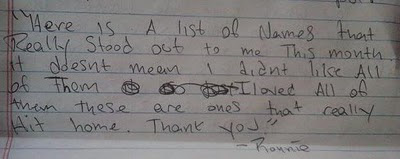 "Here is A list of Names that
Really Stood out to me This month.
it doesnt mean I didnt like All
of Them I loved All of
them these are ones that really
Hit home. Thank you"
- Ronnie